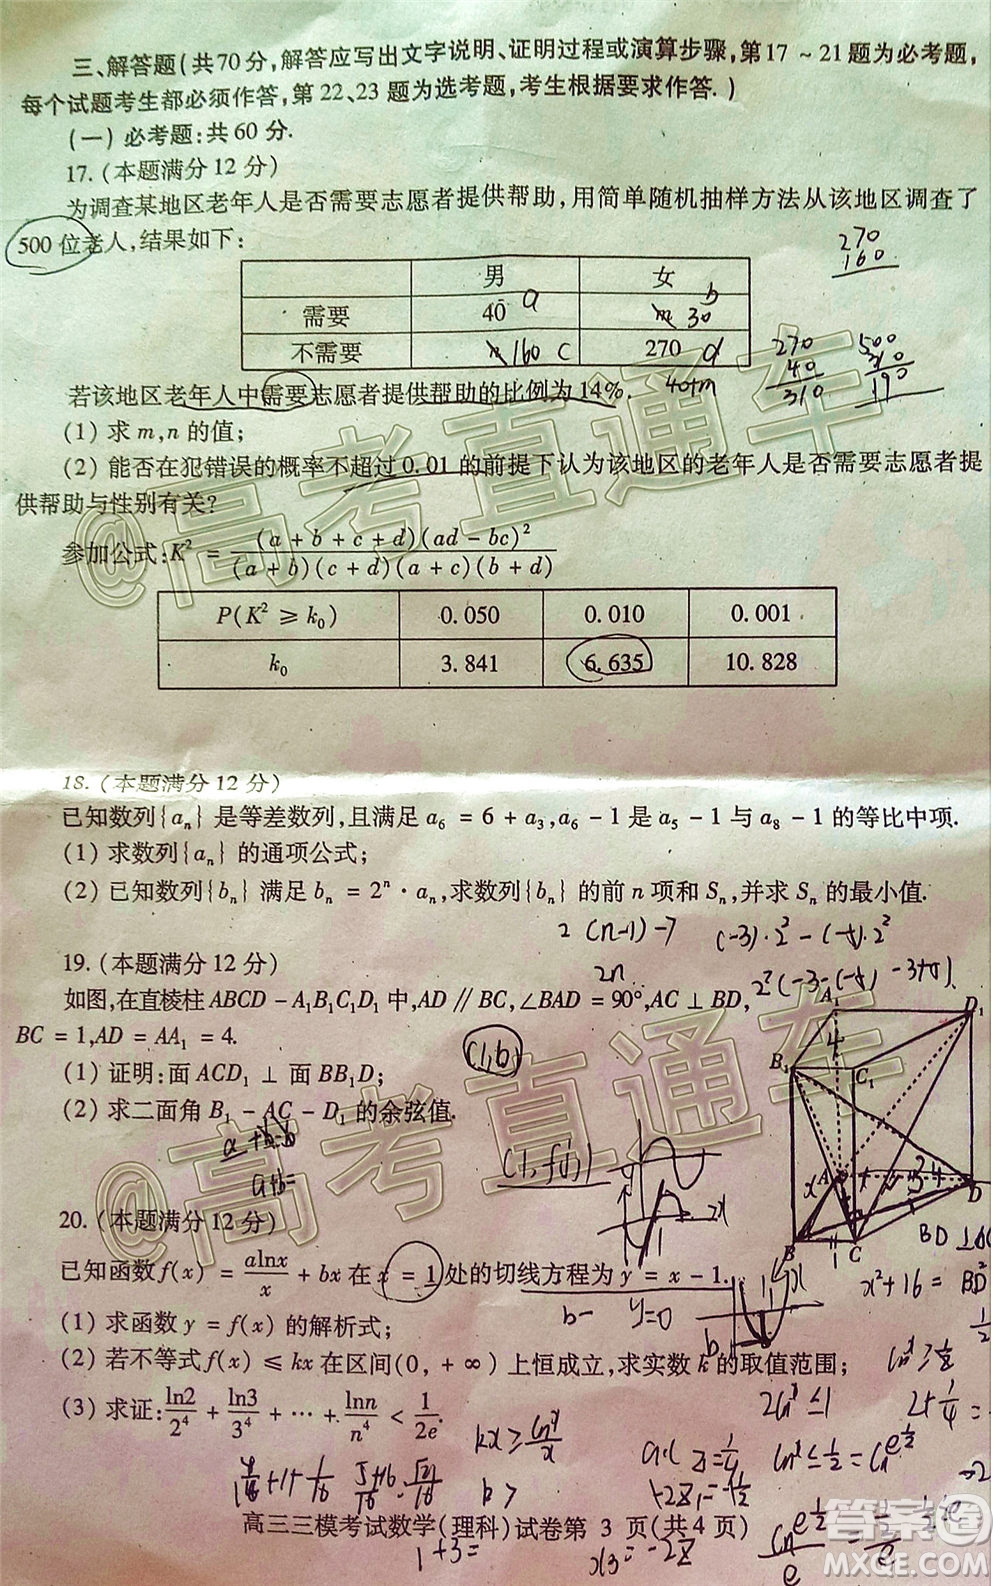 三、解答题(共70分,解答应写出文字说明、证明过程或演算步骤,第17～21题为必考题,
每个试题考生都必须作答,第22、23题为选考题,考生根据要求作答.)
(一)必考题:共60分.
17.(本题满分12分)
为调查某地区老年人是否需要志愿者提供帮助,用简单随机抽样方法从该地区调查了
500位老人,结果如下:
男 女
需要 40 a m 30 b
不需要 n 160 c 270 d
270
160
270
40
310
500
310
190
若该地区老年人中需要志愿者提供帮助的比例为14%. 40+m
(1)求m,n的值;
(2)能否在犯错误的概率不超过0.01的前提下认为该地区的老年人是否需要志愿者提
供帮助与性别有关?
参加公式:K² = (a+b+c+d)(ad-bc)² / (a+b)(c+d)(a+c)(b+d)
P(K² ≥ k₀) 0.050 0.010 0.001
k₀ 3.841 6.635 10.828
18.(本题满分12分)
已知数列{aₙ}是等差数列,且满足a₆ = 6 + a₃,a₆ - 1是a₅ - 1与a₈ - 1的等比中项.
(1)求数列{aₙ}的通项公式;
(2)已知数列{bₙ}满足bₙ = 2ⁿ·aₙ,求数列{bₙ}的前n项和Sₙ,并求Sₙ的最小值.
2(n-1)-7
2n
19.(本题满分12分)
如图,在直棱柱ABCD - A₁B₁C₁D₁中,AD∥BC,∠BAD = 90°,AC⊥BD,
BC = 1,AD = AA₁ = 4.
(1)证明:面ACD₁⊥面BB₁D;
(2)求二面角B₁ - AC - D₁的余弦值.
A₁ D₁
B₁ C₁
A D
B C
(1,b)
(1,f(1))
2x
x²+16=BD²
20.(本题满分12分)
已知函数f(x) = alnx/x + bx在x = 1处的切线方程为y = x - 1.
b- y=0
(1)求函数y = f(x)的解析式;
(2)若不等式f(x) ≤ kx在区间(0, + ∞)上恒成立,求实数k的取值范围;
(3)求证:ln2/2⁴ + ln3/3⁴ + ··· + lnn/n⁴ < 1/2e.
高三三模考试数学(理科)试卷第 3 页(共4页)
1+3=
答案圈
MXQE.COM
@高考直通车
@高考直通车